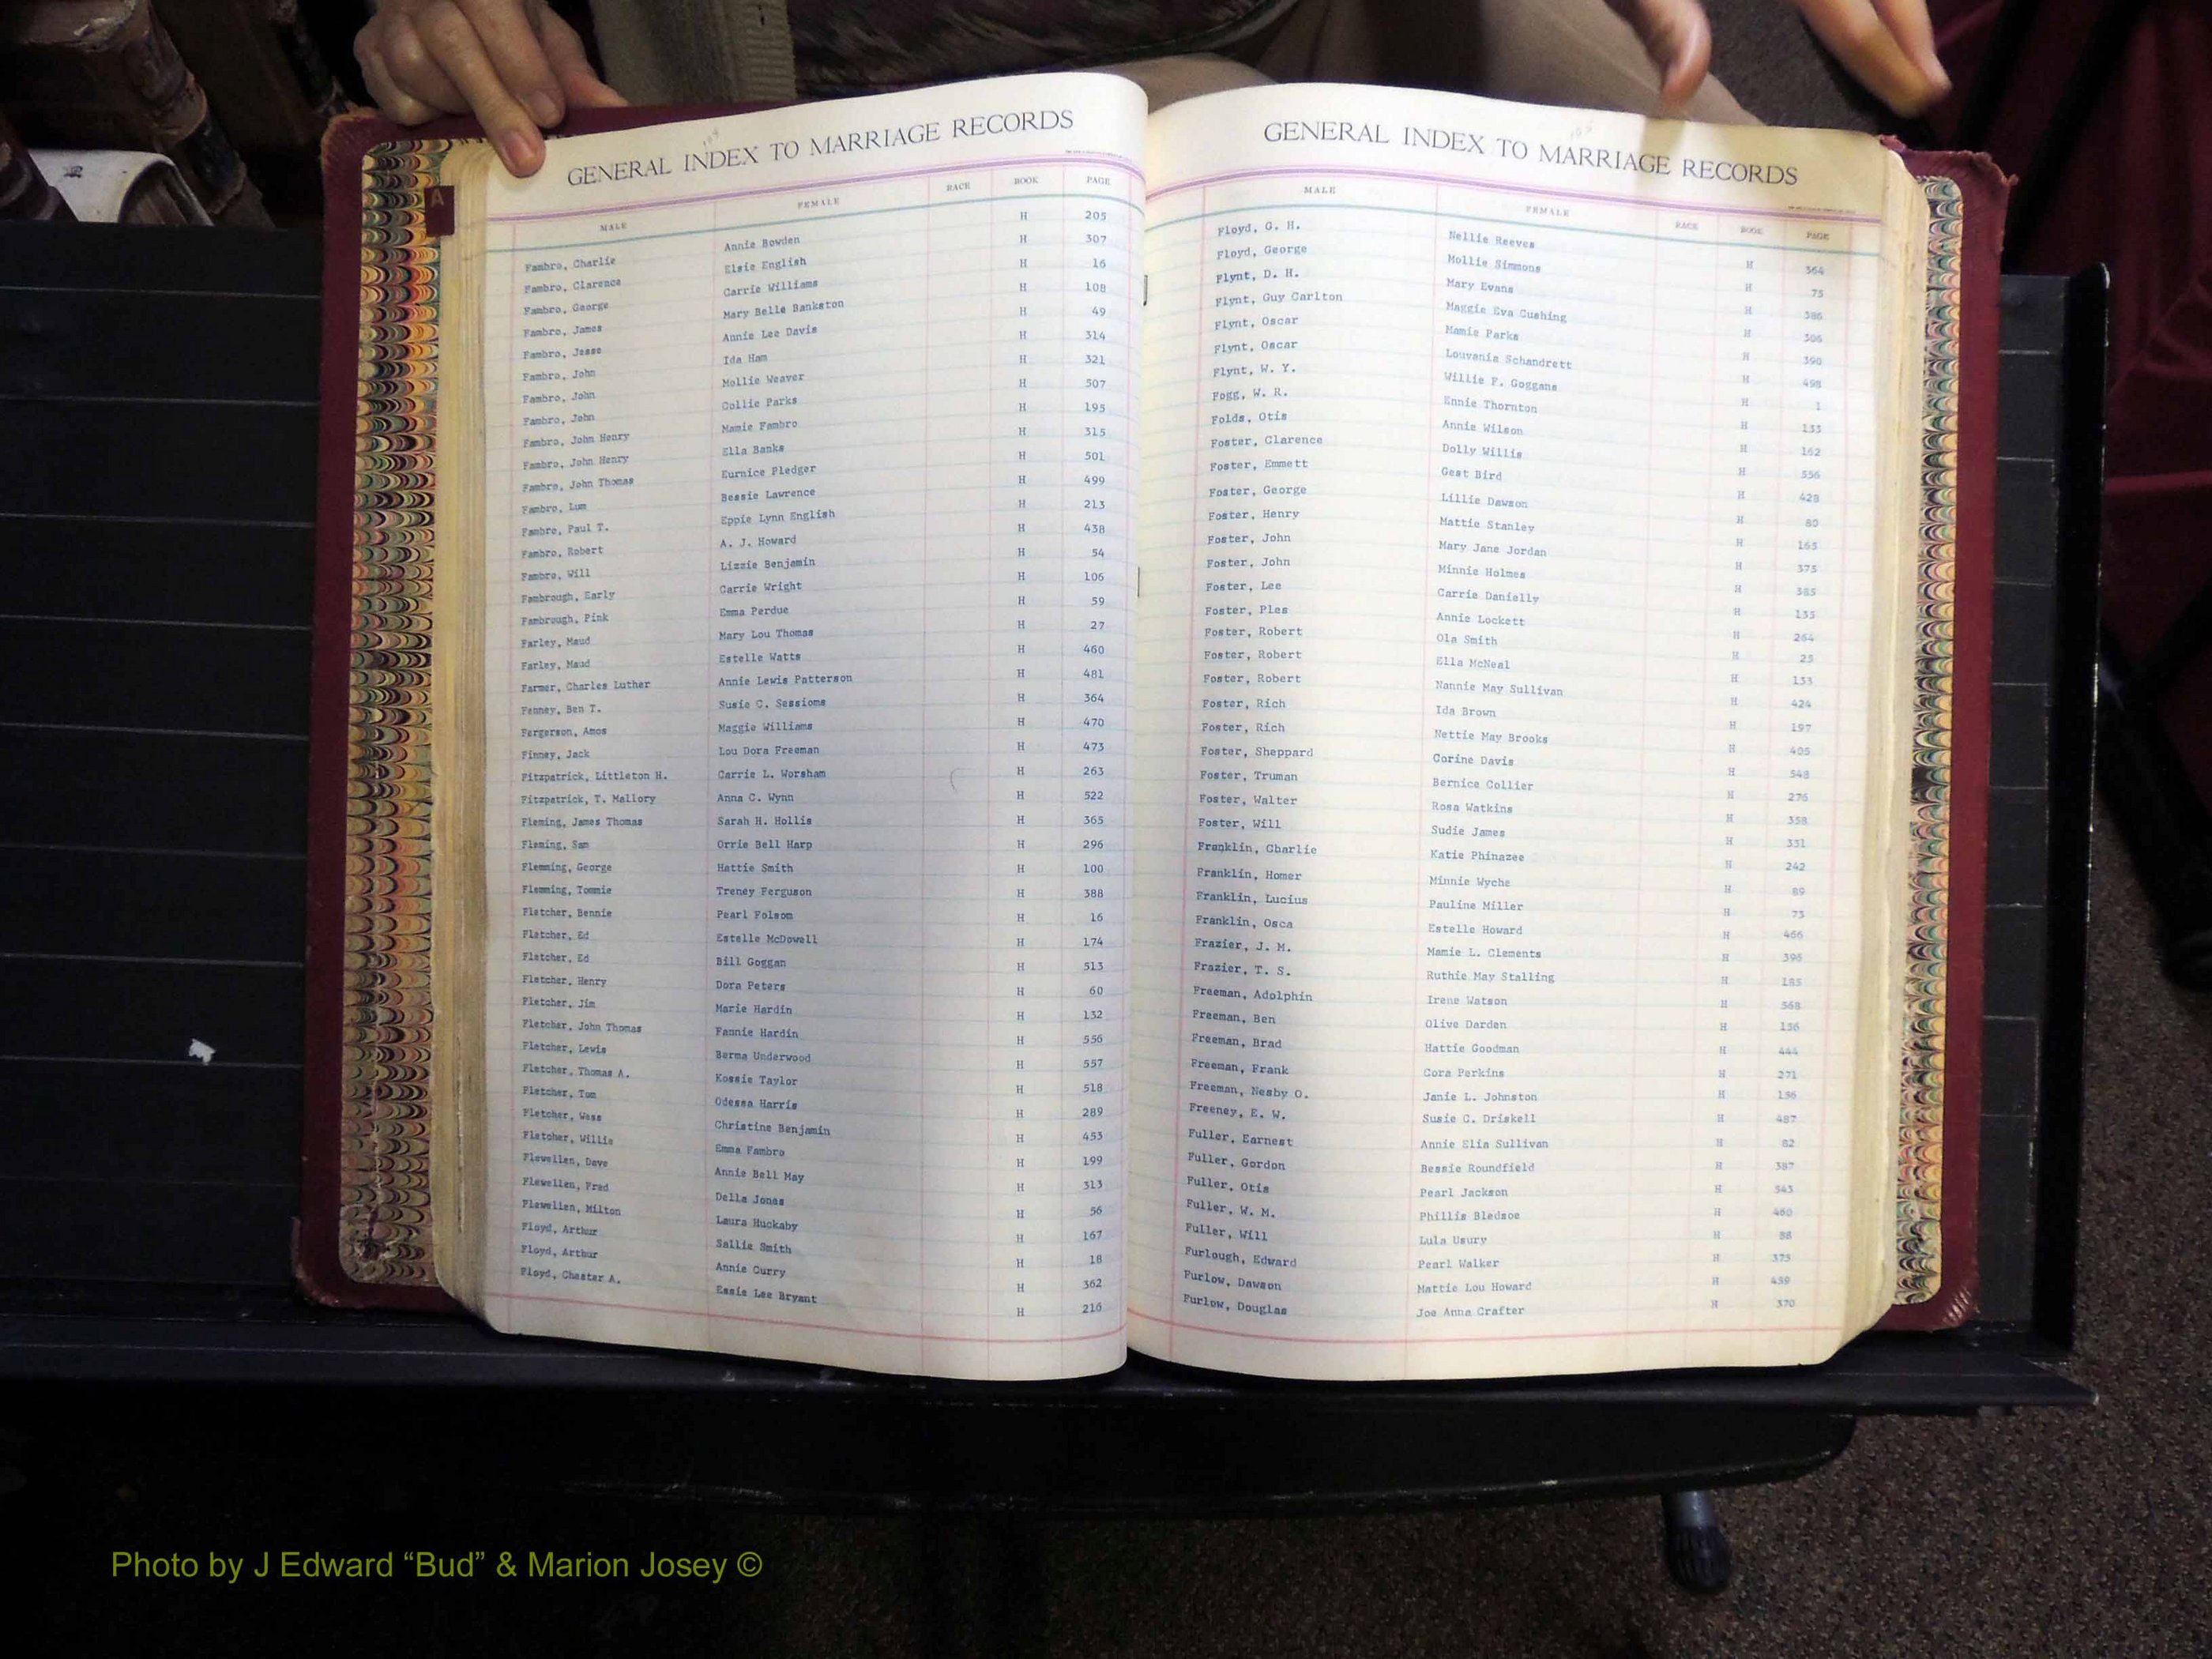 GENERAL INDEX TO MARRIAGE RECORDS
MALE FEMALE RACE BOOK PAGE
Fambro, Charlie Annie Bowden H 205
Fambro, Clarence Elsie English H 307
Fambro, George Carrie Williams H 16
Fambro, James Mary Belle Bankston H 108
Fambro, Jesse Annie Lee Davis H 49
Fambro, John Ida Ham H 314
Fambro, John Mollie Weaver H 321
Fambro, John Collie Parks H 507
Fambro, John Henry Mamie Fambro H 195
Fambro, John Henry Ella Banks H 315
Fambro, John Thomas Eurnice Pledger H 501
Fambro, Lum Bessie Lawrence H 499
Fambro, Paul T. Eppie Lynn English H 213
Fambro, Robert A. J. Howard H 438
Fambro, Will Lizzie Benjamin H 54
Fambrough, Early Carrie Wright H 106
Fambrough, Pink Emma Perdue H 59
Farley, Maud Mary Lou Thomas H 27
Farley, Maud Estelle Watts H 460
Farmer, Charles Luther Annie Lewis Patterson H 481
Fenney, Ben T. Susie C. Sessions H 364
Fergerson, Amos Maggie Williams H 470
Finney, Jack Lou Dora Freeman H 473
Fitzpatrick, Littleton H. Carrie L. Worsham H 263
Fitzpatrick, T. Mallory Anna C. Wynn H 522
Fleming, James Thomas Sarah H. Hollis H 365
Fleming, Sam Orrie Bell Harp H 296
Flemming, George Hattie Smith H 100
Flemming, Tommie Treney Ferguson H 388
Fletcher, Bennie Pearl Folsom H 16
Fletcher, Ed Estelle McDowell H 174
Fletcher, Ed Bill Goggan H 513
Fletcher, Henry Dora Peters H 60
Fletcher, Jim Marie Hardin H 132
Fletcher, John Thomas Fannie Hardin H 556
Fletcher, Lewis Berma Underwood H 557
Fletcher, Thomas A. Kossie Taylor H 518
Fletcher, Tom Odessa Harris H 289
Fletcher, Wess Christine Benjamin H 453
Fletcher, Willis Emma Fambro H 199
Flewellen, Dave Annie Bell May H 313
Flewellen, Fred Della Jones H 56
Flewellen, Milton Laura Huckaby H 167
Floyd, Arthur Sallie Smith H 18
Floyd, Arthur Annie Curry H 362
Floyd, Chester A. Essie Lee Bryant H 216
GENERAL INDEX TO MARRIAGE RECORDS
MALE FEMALE RACE BOOK PAGE
Floyd, G. H. Nellie Reeves H 364
Floyd, George Mollie Simmons H 75
Flynt, D. H. Mary Evans H 386
Flynt, Guy Carlton Maggie Eva Cushing H 306
Flynt, Oscar Mamie Parks H 390
Flynt, Oscar Louvania Schandrett H 498
Flynt, W. Y. Willie F. Goggans H 1
Fogg, W. R. Ennie Thornton H 133
Folds, Otis Annie Wilson H 162
Foster, Clarence Dolly Willis H 556
Foster, Emmett Gest Bird H 428
Foster, George Lillie Dawson H 80
Foster, Henry Mattie Stanley H 165
Foster, John Mary Jane Jordan H 375
Foster, John Minnie Holmes H 385
Foster, Lee Carrie Danielly H 135
Foster, Ples Annie Lockett H 264
Foster, Robert Ola Smith H 25
Foster, Robert Ella McNeal H 133
Foster, Robert Nannie May Sullivan H 424
Foster, Rich Ida Brown H 197
Foster, Rich Nettie May Brooks H 405
Foster, Sheppard Corine Davis H 548
Foster, Truman Bernice Collier H 276
Foster, Walter Rosa Watkins H 358
Foster, Will Sudie James H 331
Franklin, Charlie Katie Phinazee H 242
Franklin, Homer Minnie Wyche H 89
Franklin, Lucius Pauline Miller H 73
Franklin, Osca Estelle Howard H 466
Frazier, J. M. Mamie L. Clements H 396
Frazier, T. S. Ruthie May Stalling H 185
Freeman, Adolphin Irene Watson H 568
Freeman, Ben Olive Darden H 156
Freeman, Brad Hattie Goodman H 444
Freeman, Frank Cora Perkins H 271
Freeman, Nesby O. Janie L. Johnston H 156
Freeney, E. W. Susie C. Driskell H 487
Fuller, Earnest Annie Elia Sullivan H 82
Fuller, Gordon Bessie Roundfield H 387
Fuller, Otis Pearl Jackson H 543
Fuller, W. M. Phillis Bledsoe H 460
Fuller, Will Lula Usury H 88
Furlough, Edward Pearl Walker H 375
Furlow, Dawson Mattie Lou Howard H 459
Furlow, Douglas Joe Anna Crafter H 370
A
Photo by J Edward “Bud” & Marion Josey ©